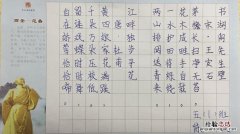 书湖阴先生壁
宋·王安石
茅檐长扫净无苔，
花木成畦手自栽。
一水护田将绿绕，
两山排闼送青来。
江畔独步寻花
唐·杜甫
黄四娘家花满蹊，
千朵万朵压枝低。
留连戏蝶时时舞，
自在娇莺恰恰啼。